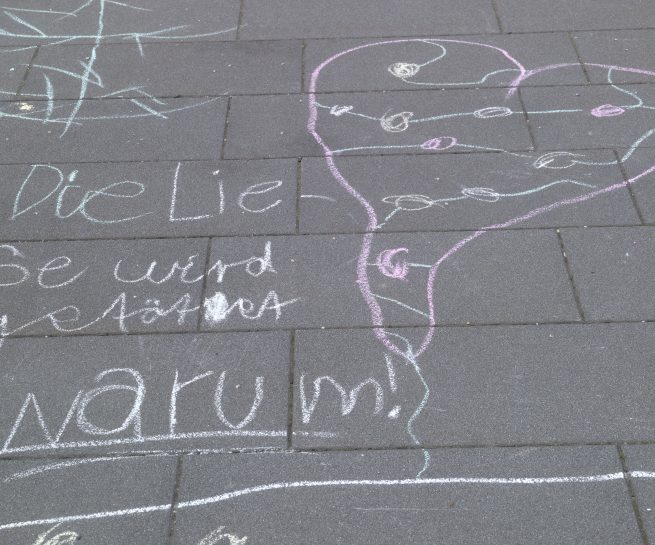 Die Lie-
Be wird
getötet
warum!